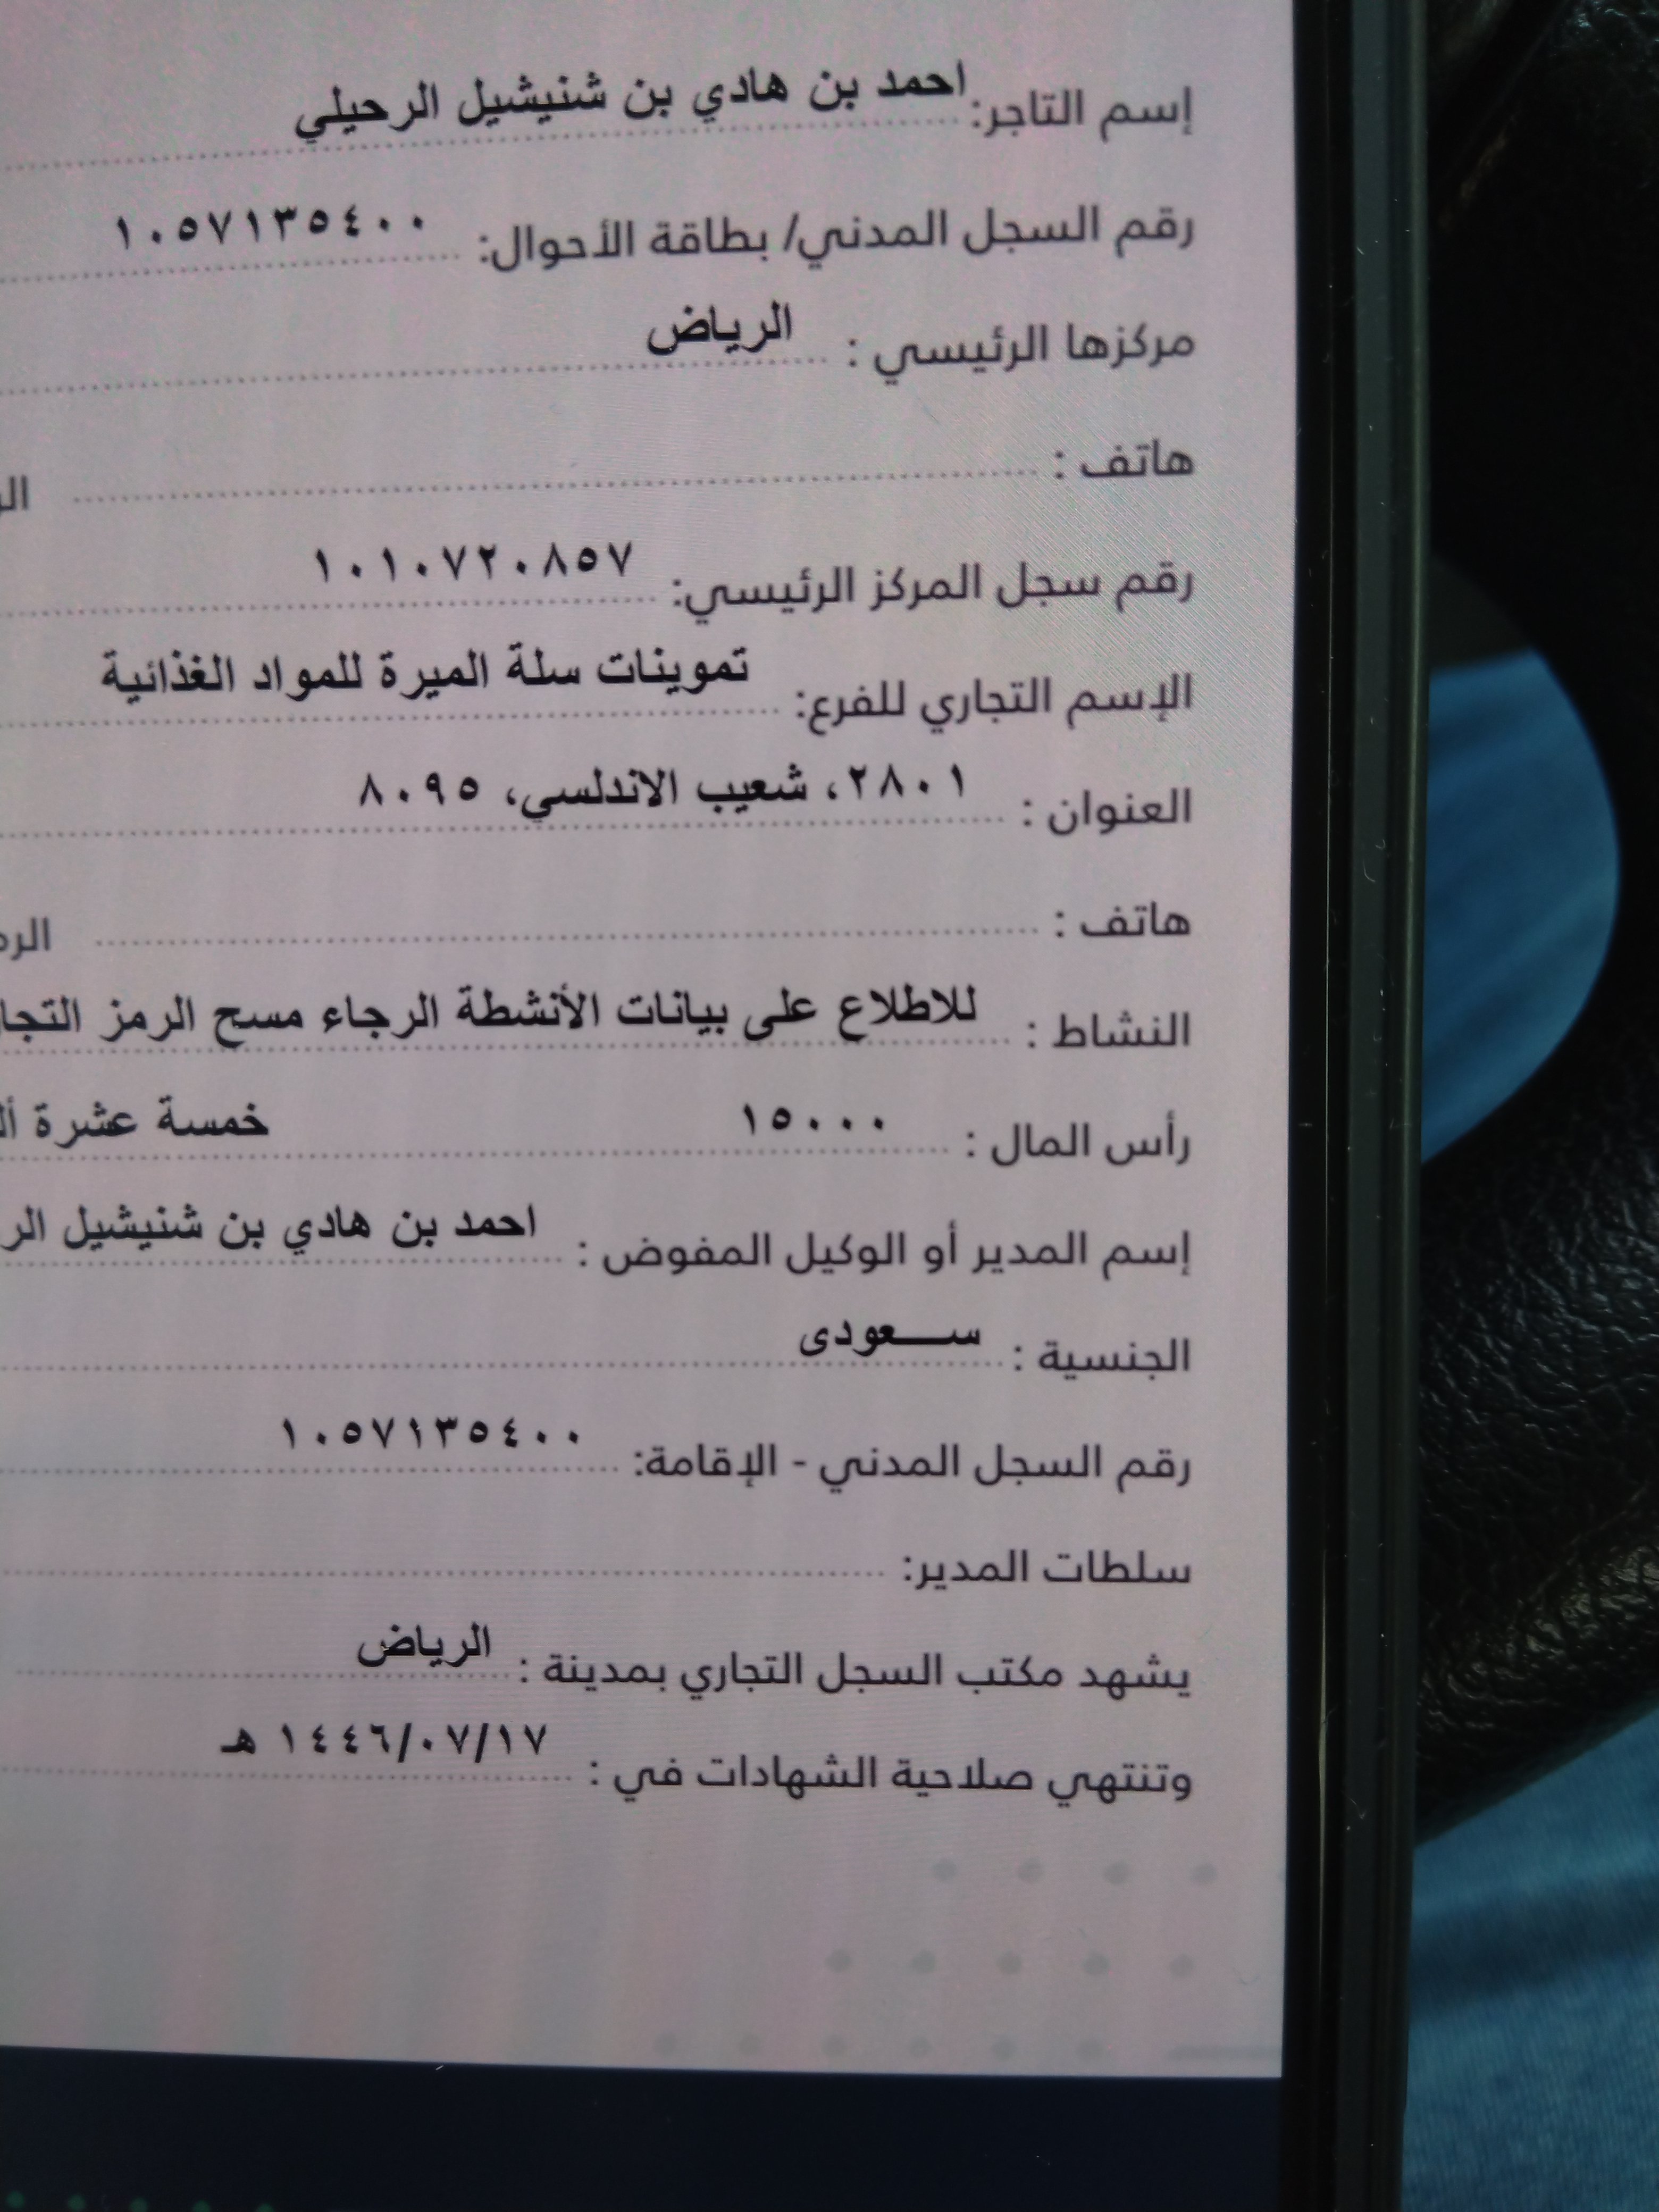 إسم التاجر: احمد بن هادي بن شنيشيل الرحيلي
رقم السجل المدني/ بطاقة الأحوال: ١٠٥٧١٣٥٤٠٠
مركزها الرئيسي : الرياض
هاتف :
رقم سجل المركز الرئيسي: ١٠١٠٧٢٠٨٥٧
الإسم التجاري للفرع: تموينات سلة الميرة للمواد الغذائية
العنوان : ٢٨٠١، شعيب الاندلسي، ٨٠٩٥
هاتف :
النشاط : للاطلاع على بيانات الأنشطة الرجاء مسح الرمز
رأس المال : ١٥٠٠٠ خمسة عشرة
إسم المدير أو الوكيل المفوض : احمد بن هادي بن شنيشيل
الجنسية : ســعودى
رقم السجل المدني - الإقامة: ١٠٥٧١٣٥٤٠٠
سلطات المدير:
يشهد مكتب السجل التجاري بمدينة : الرياض
وتنتهي صلاحية الشهادات في : ١٤٤٦/٠٧/١٧ هـ